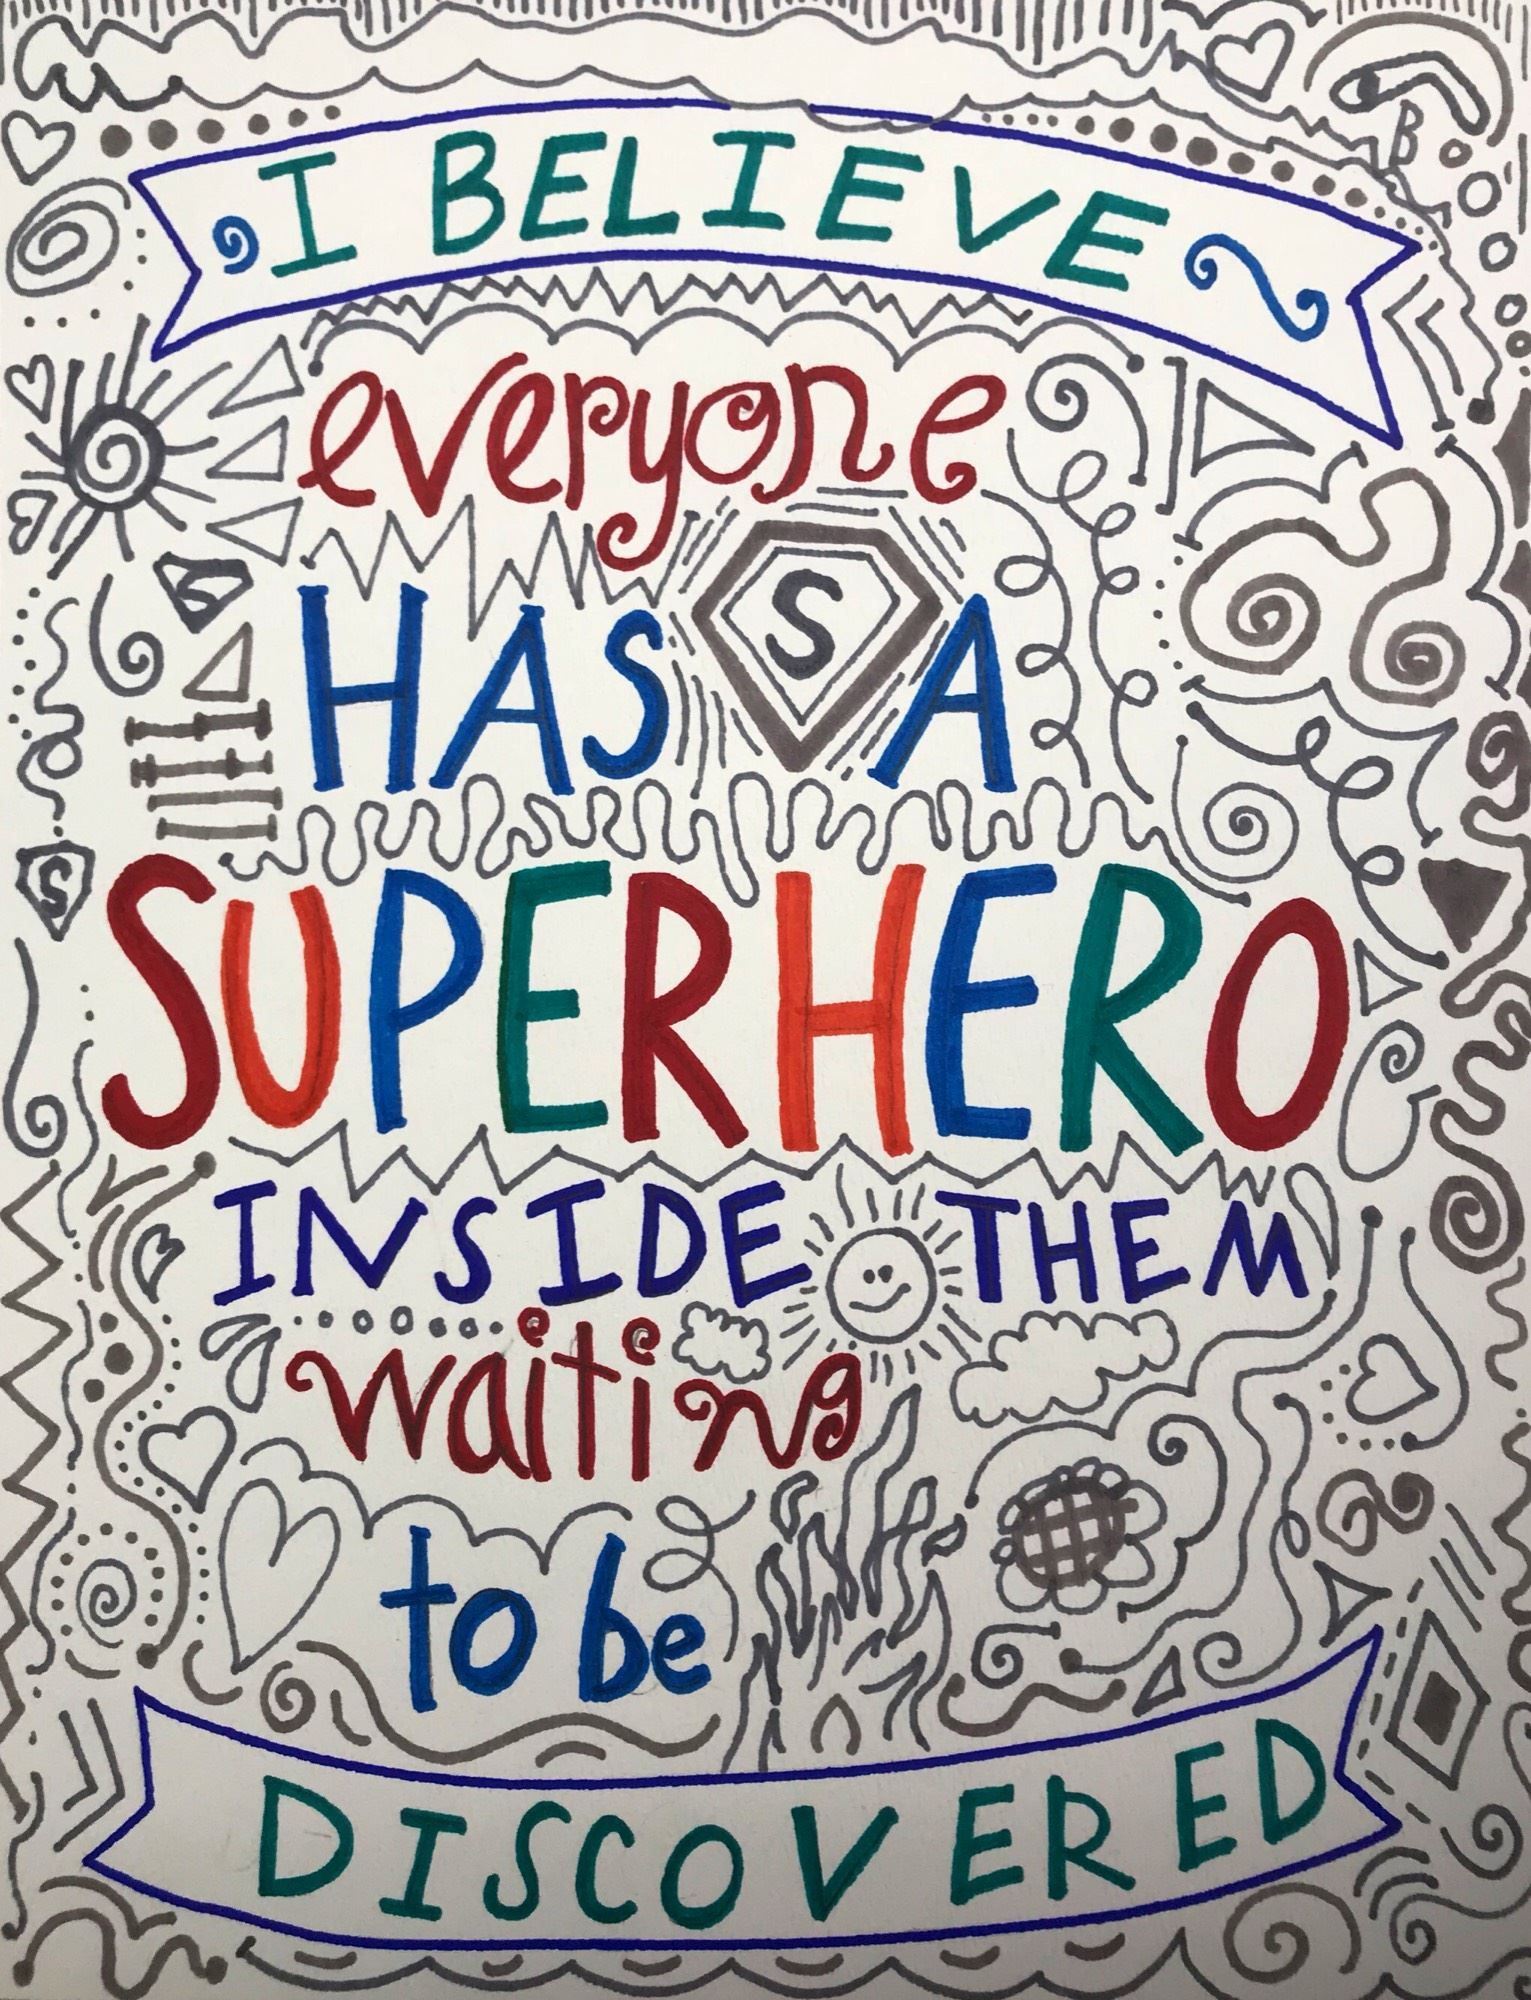 B
I BELIEVE
everyone
S
HAS A
S
SUPERHERO
INSIDE THEM
waiting
to be
DISCOVERED